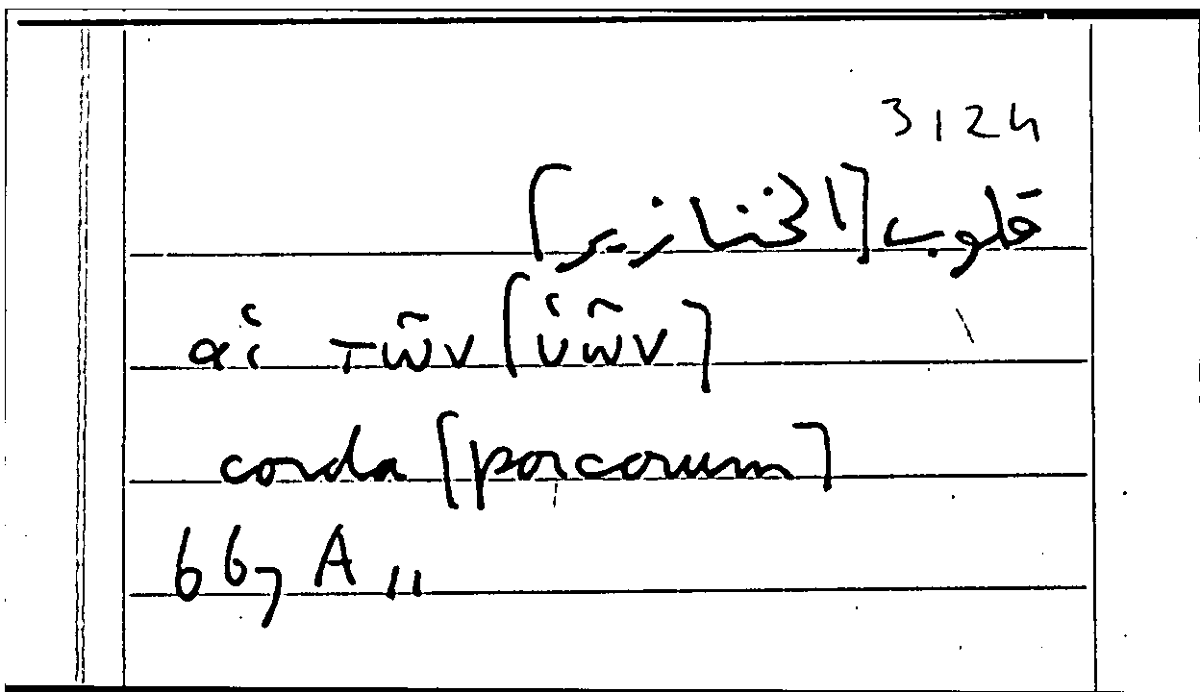 3124
قلوب [الخنازير]
αἱ τῶν [ὑῶν]
corda [porcorum]
667 A 11